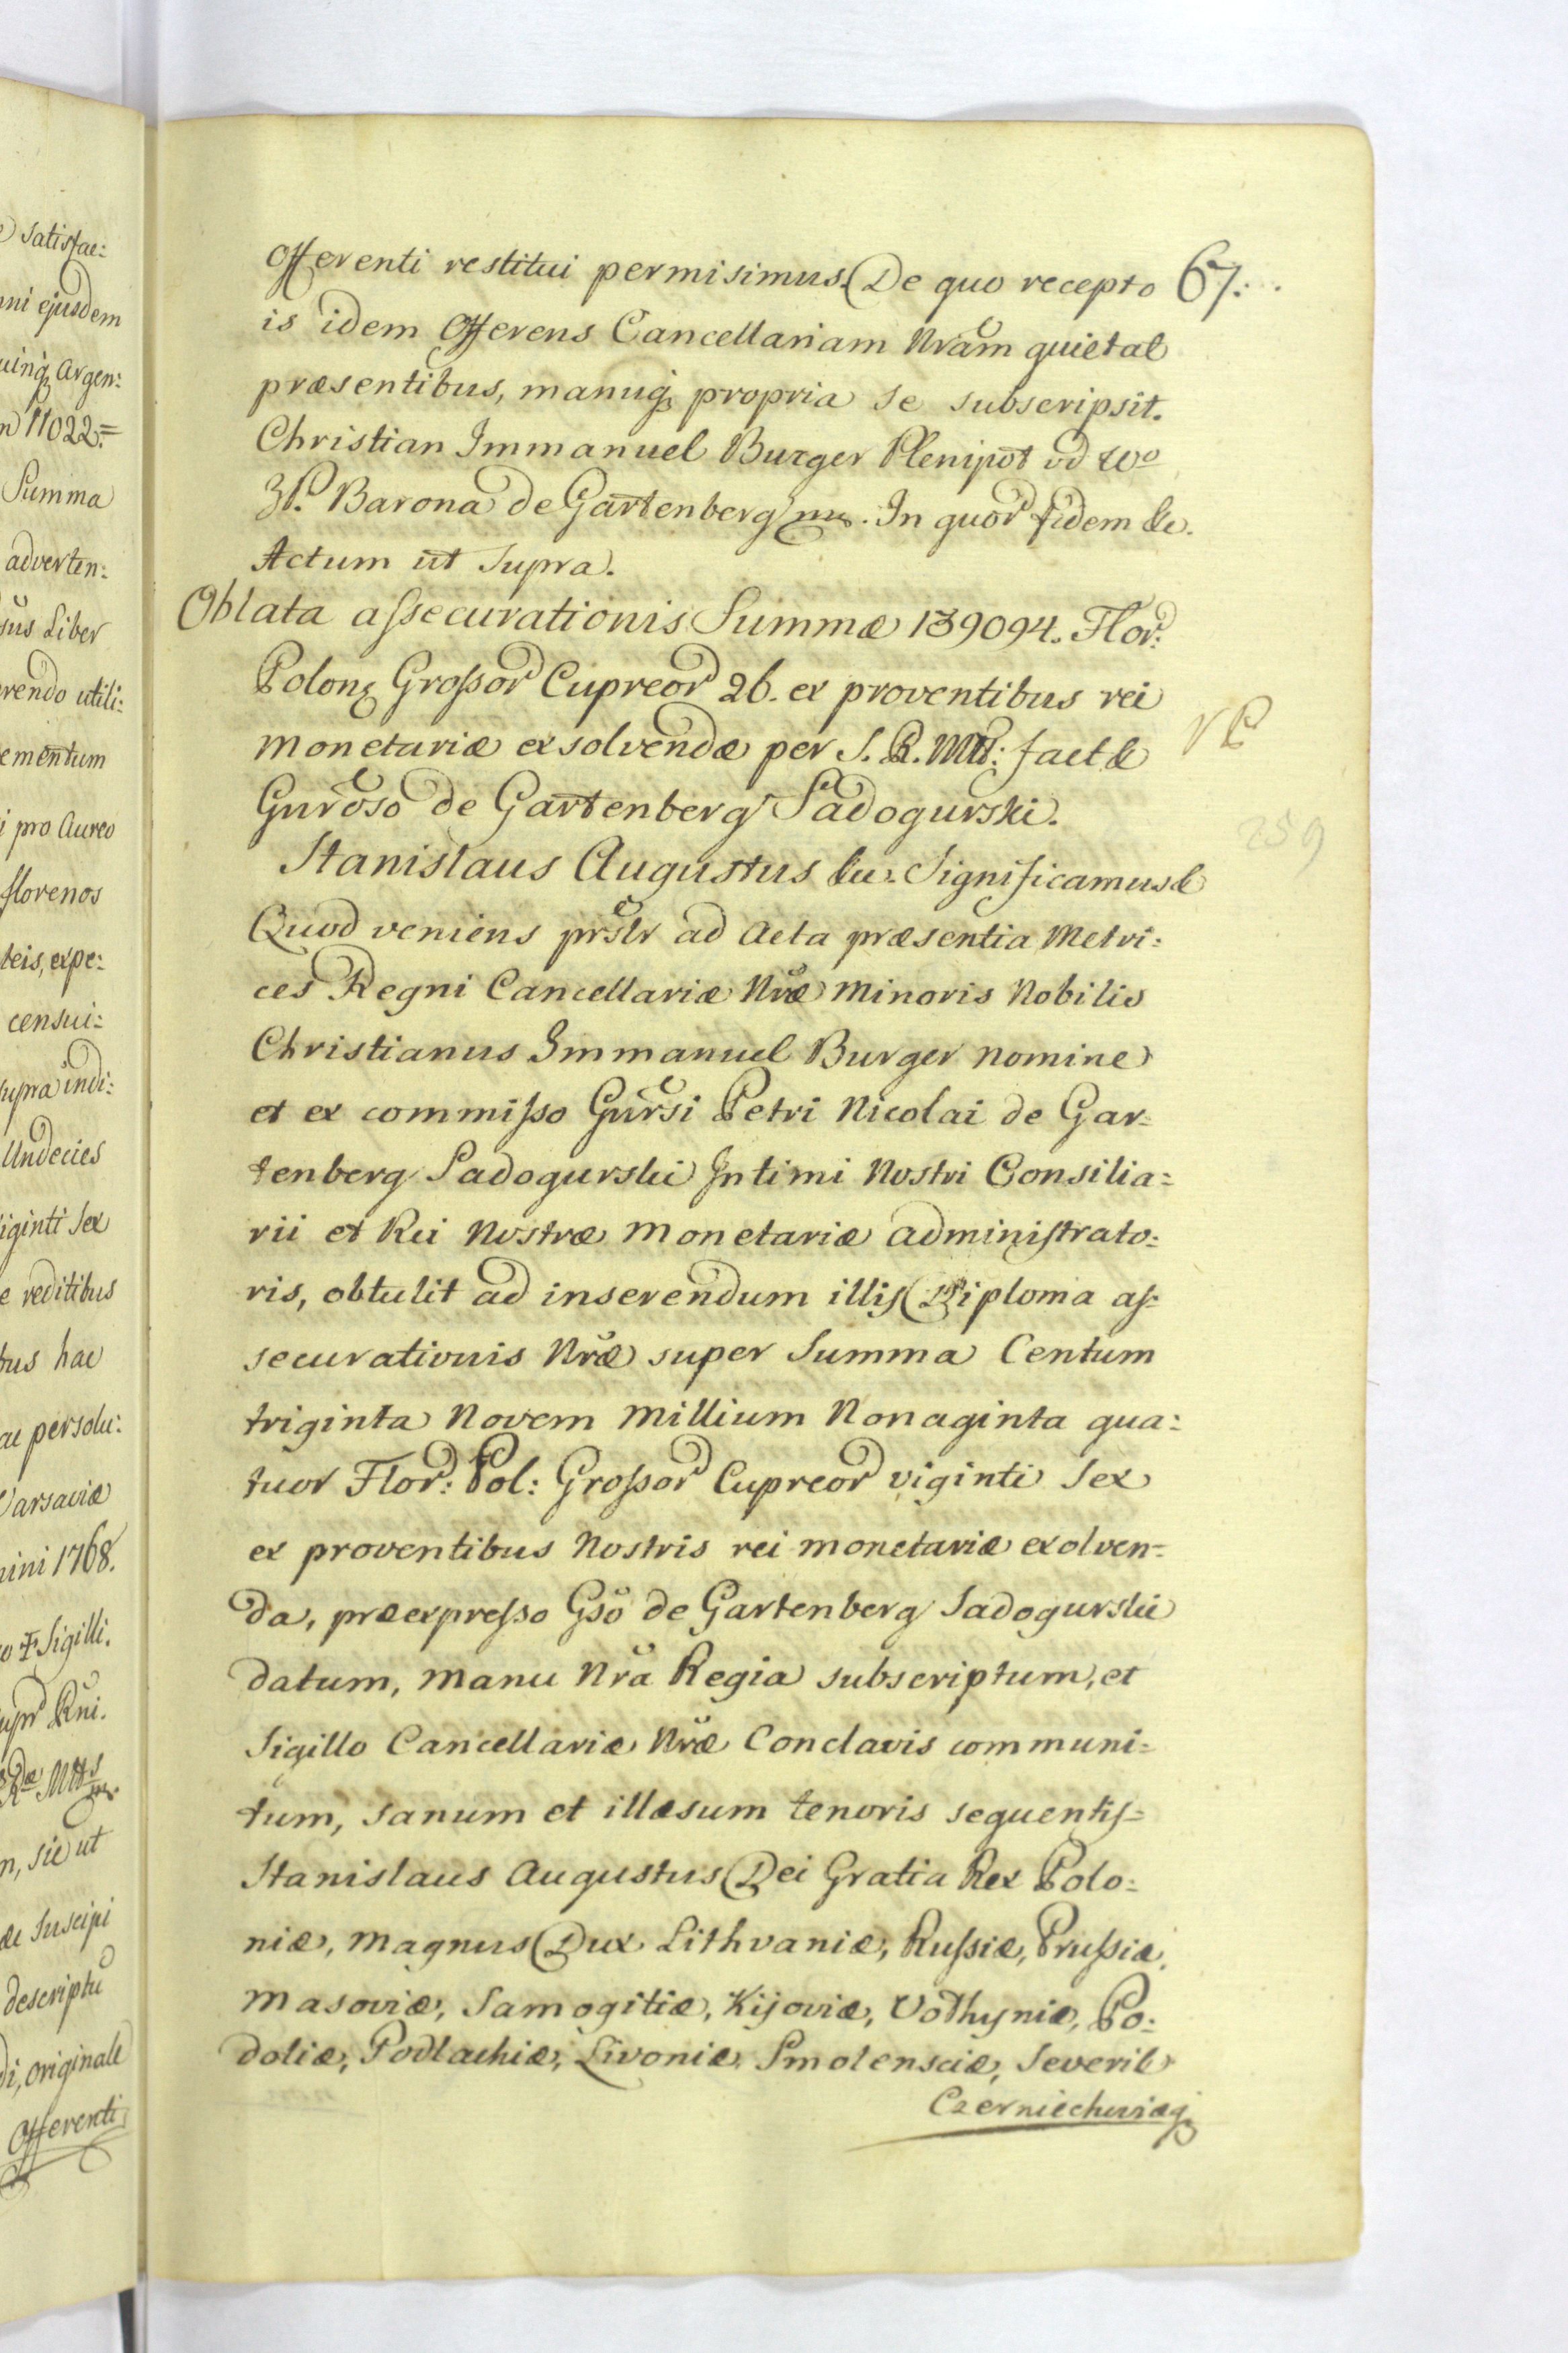 satisfac:
ni ejusdem
uinq; Argen:
n 11022.=
Summa
adverten:
sus Liber
rendo utili:
ementum
i pro Aureo
florenos
teis, expe:
censui:
supra indi:
Undecies
iginti Sex
e reditibus
bus hac
ac persolu:
Varsaviæ
mini 1768.
Sigilli.
Rni.
n, sic ut
æ Suscipi
descriptu
di, originale
Offerenti
Offerenti restitui permisimus. De quo recepto 67.
is idem Offerens Cancellariam Nram quietat
præsentibus, manuq; propria se subscripsit.
Christian Immanuel Burger Plenipot od Wo
JP. Barona de Gartenberg mp. In quor fidem &c.
Actum ut supra.
Oblata assecurationis Summæ 139094. Flor:
Polon; Grossor Cupreor 26. ex proventibus rei
monetariæ exsolvendæ per S. R. Mtt: fact &
Guroso de Gartenberg Sadogurski.
Stanislaus Augustus &c. Significamus &
Quod veniens prslr ad Acta præsentia Metri:
ces Regni Cancellariæ Nræ Minoris Nobilis
Christianus Immanuel Burger nomine
et ex commisso Gursi Petri Nicolai de Gar-
tenberg Sadogurski Intimi Nostri Consilia:
rii et Rei Nostræ Monetariæ Administrato:
ris, obtulit ad inserendum illis Diploma as:
securationis Nræ super Summa Centum
triginta Novem Millium Nonaginta qua:
tuor Flor: Pol: Grossor Cupreor viginti Sex
ex proventibus Nostris rei monetariæ exolven:
da, præexpresso Gso de Gartenberg Sadogurski
datum, manu Nra Regia subscriptum, et
Sigillo Cancellariæ Nræ Conclavis communi:
tum, sanum et illæsum tenoris sequentis=
Stanislaus Augustus Dei Gratia Rex Polo:
niæ, Magnus Dux Lithvaniæ, Russiæ, Prussiæ,
Masoviæ, Samogitiæ, Kijoviæ, Volhyniæ, Po:
doliæ, Podlachiæ, Livoniæ, Smolensciæ, Severiæ
Czerniechiviæq;
259